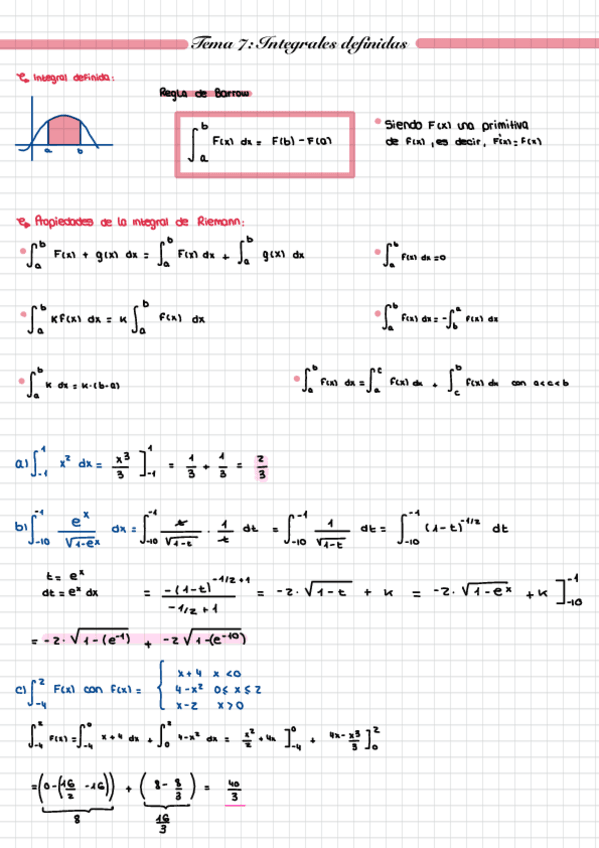 Tema 7: Integrales definidas
Integral definida:
Regla de Barrow
∫_a^b F(x) dx = F(b) - F(a)
• Siendo F(x) una primitiva
de F(x), es decir, F'(x) = F(x)
a b
Propiedades de la integral de Riemann:
• ∫_a^b F(x) + g(x) dx = ∫_a^b F(x) dx + ∫_a^b g(x) dx
• ∫_a^b F(x) dx = 0
• ∫_a^b K F(x) dx = K ∫_a^b F(x) dx
• ∫_a^b F(x) dx = -∫_b^a F(x) dx
• ∫_a^b K dx = K·(b-a)
• ∫_a^b F(x) dx = ∫_a^c F(x) dx + ∫_c^b F(x) dx con a<c<b
a) ∫_-1^1 x² dx = x³/3 ]_-1^1 = 1/3 + 1/3 = 2/3
b) ∫_-10^-1 e^x/√(1-e^x) dx = ∫_-10^-1 t/√(1-t) · 1/t dt = ∫_-10^-1 1/√(1-t) dt = ∫_-10^-1 (1-t)^(-1/2) dt
t = e^x
dt = e^x dx
= -(1-t)^(-1/2+1)/(-1/2+1) = -2·√(1-t) + K = -2·√(1-e^x) + K ]_-10^-1
= -2·√(1-(e^-1)) + -2√(1-(e^-10))
c) ∫_-4^2 F(x) con F(x) = { x+4 x<0
4-x² 0≤x≤2
x-2 x>0
∫_-4^2 F(x) = ∫_-4^0 x+4 dx + ∫_0^2 4-x² dx = x²/2 + 4x ]_-4^0 + 4x - x³/3 ]_0^2
= (0-(16/2 - 16)) + (8 - 8/3) = 40/3
8 16/3